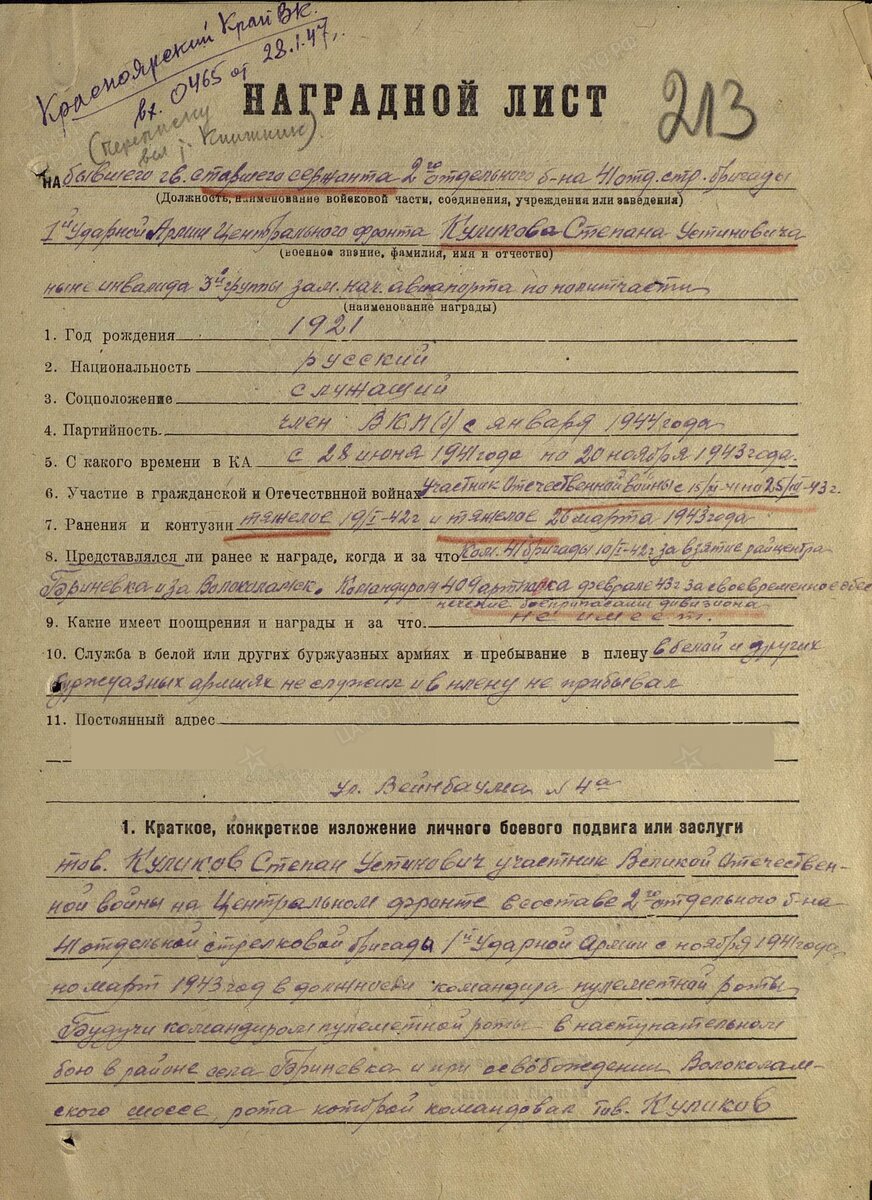 Красноярский Край ВК.
вх. 0465 от 28.1.47.
(переписку
вел т. Книжник).
НАГРАДНОЙ ЛИСТ
213
на бывшего гв. старшего сержанта 2го отдельного б-на 41 отд. стр. бригады
(Должность, наименование войсковой части, соединения, учреждения или заведения)
1й Ударной Армии Центрального фронта Куликова Степана Устиновича
(военное звание, фамилия, имя и отчество)
ныне инвалида 3й группы зам. нач. авиапорта по политчасти
(наименование награды)
1. Год рождения 1921
2. Национальность русский
3. Соцположение служащий
4. Партийность. член ВКП(б) с января 1944 года
5. С какого времени в КА с 28 июня 1941 года по 20 ноября 1943 года.
6. Участие в гражданской и Отечествнной войнах участник Отечественной войны с 15/XI-41 по 25/III-43 г.
7. Ранения и контузии тяжелое 19/I-42г и тяжелое 26 марта 1943 года
8. Представлялся ли ранее к награде, когда и за что Ком. 41 бригады 10/I-42г за взятие райцентра
Бриневка и за Волоколамск. Командиром 409 артполка феврале 43г за своевременное обес
печение боеприпасами дивизиона
9. Какие имеет поощрения и награды и за что. не имеет.
10. Служба в белой или других буржуазных армиях и пребывание в плену в белой и других
буржуазных армиях не служил и в плену не прибывал
11. Постоянный адрес
ул. Вейнбаума № 4а
1. Краткое, конкретное изложение личного боевого подвига или заслуги
тов. Куликов Степан Устинович участник Великой Отечествен-
ной войны на Центральном фронте в составе 2го отдельного б-на
41 отдельной стрелковой бригады 1й Ударной Армии с ноября 1941 года
по март 1943 год в должности командира пулеметной роты
Будучи командиром пулеметной роты в наступательном
бою в районе села Бриневка и при освобождении Волоколам-
ского шоссе, рота которой командовал тов. Куликов